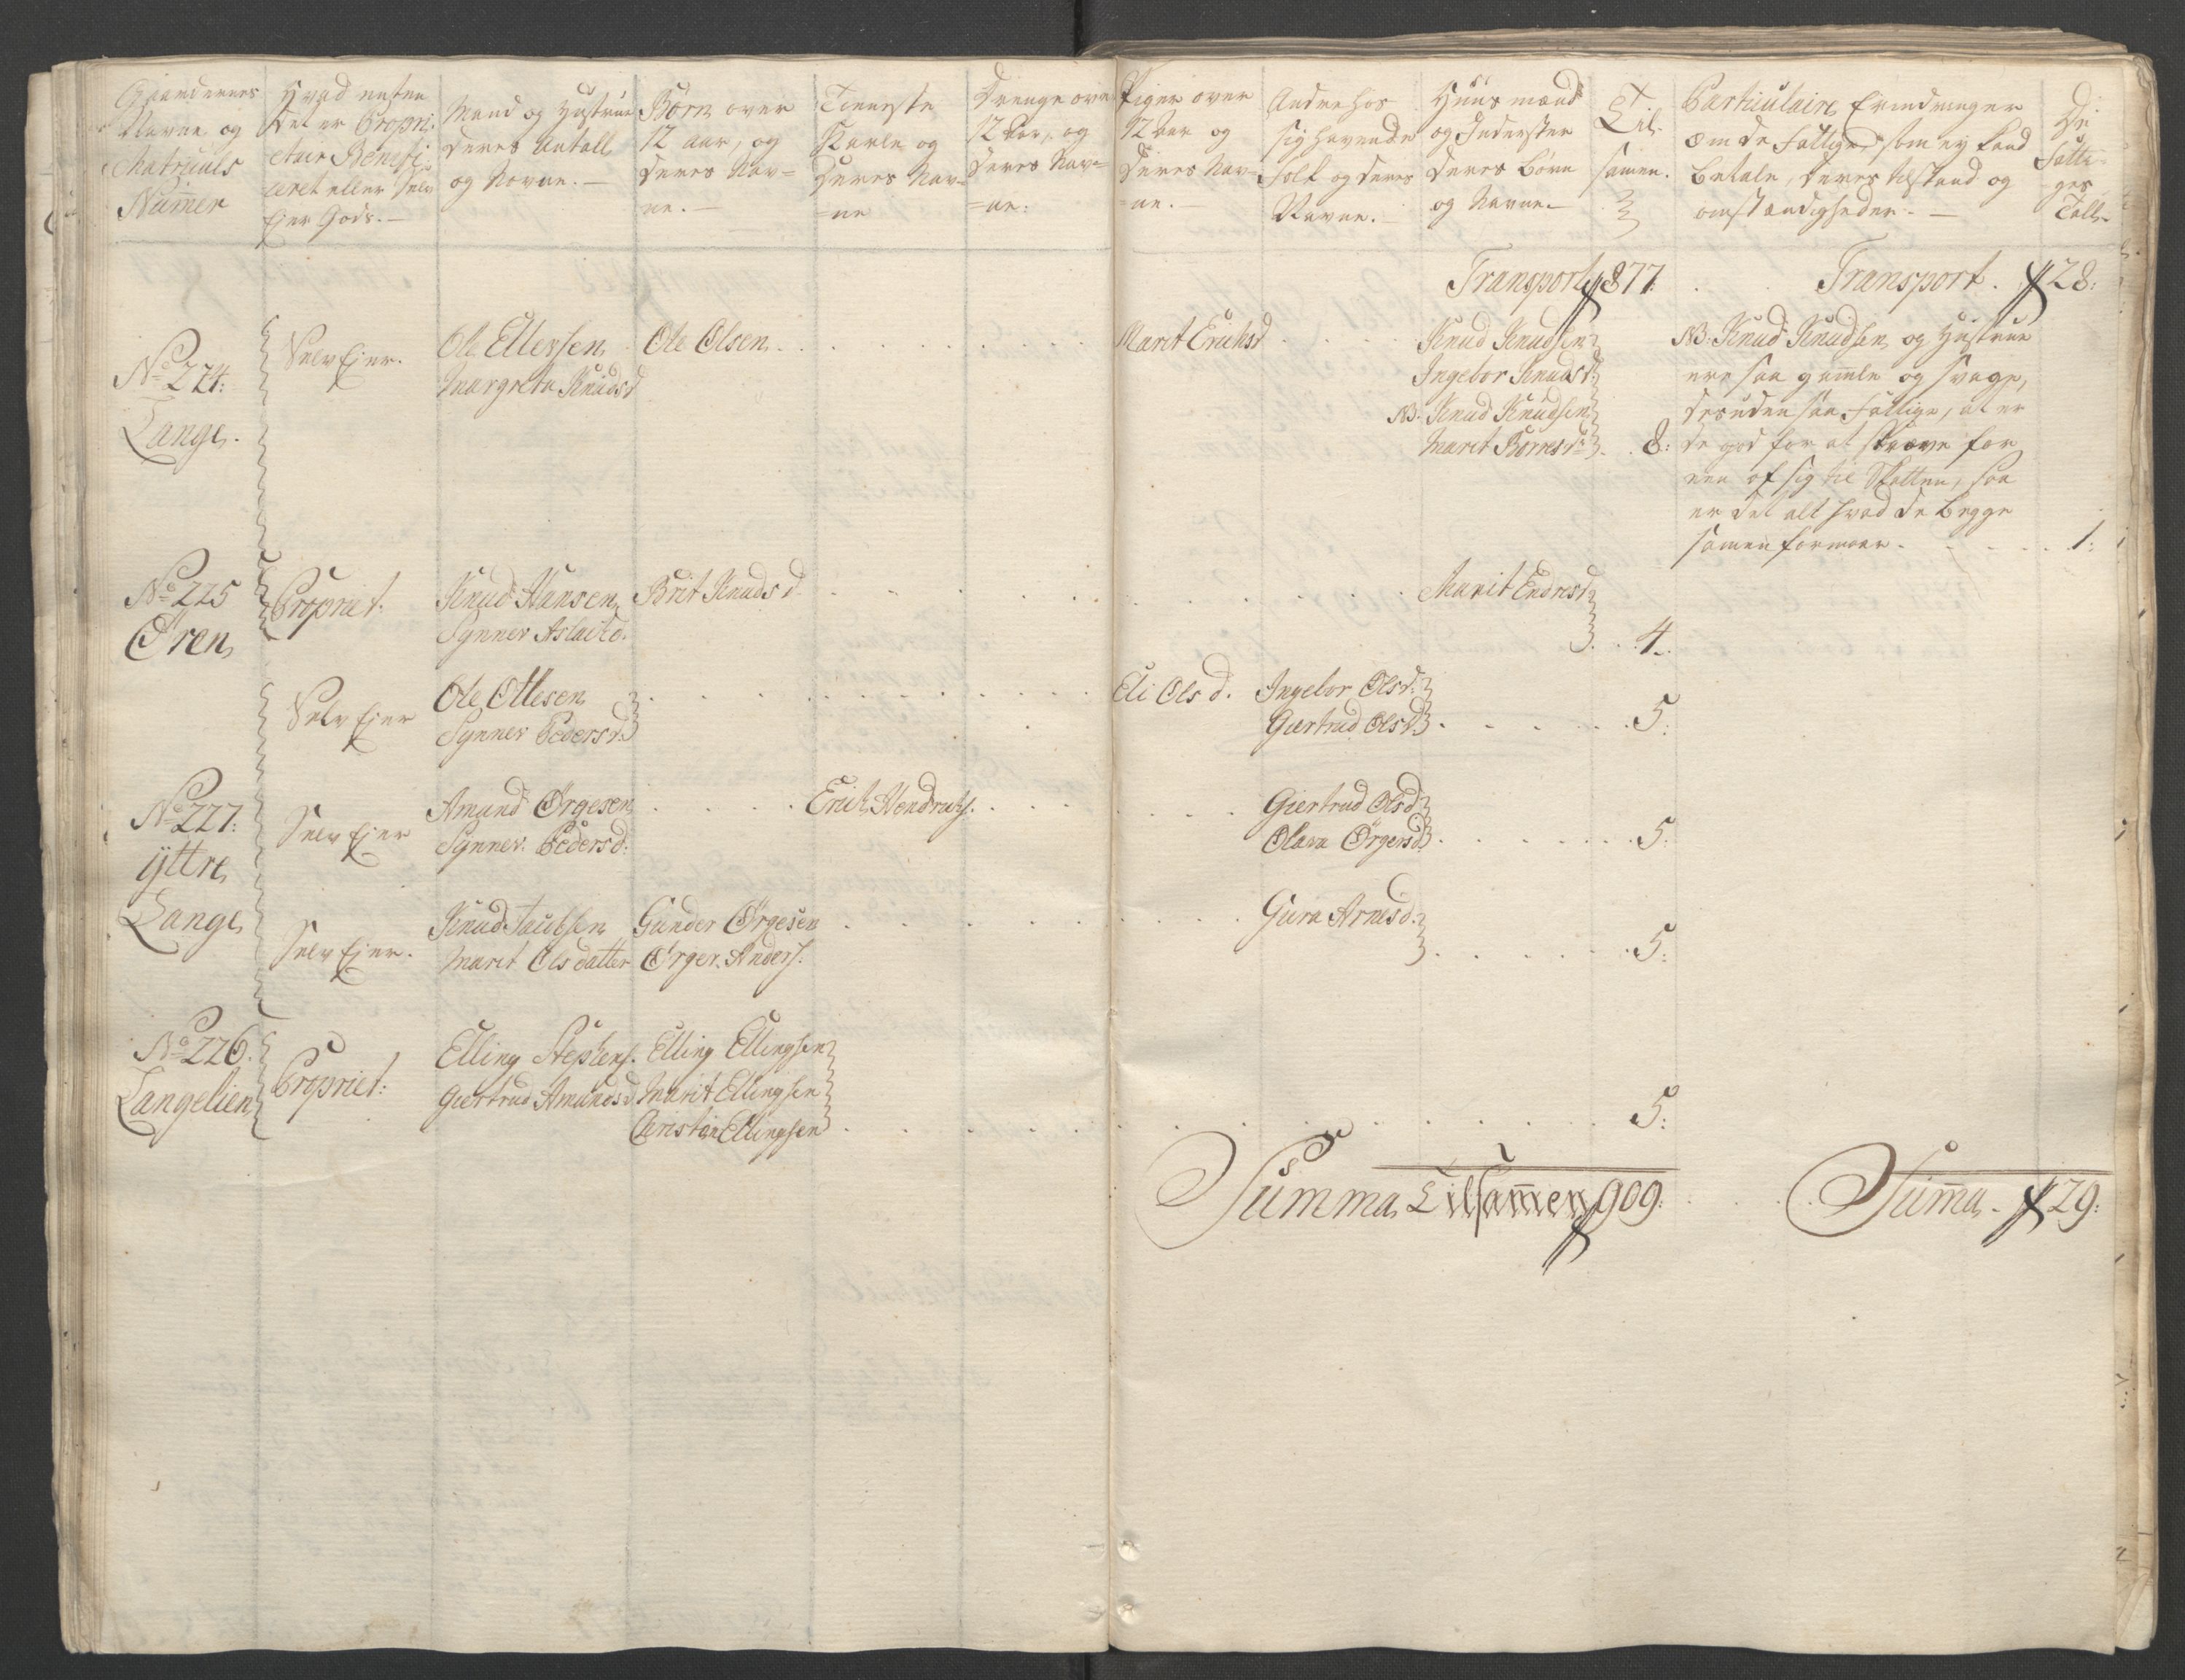 Gaardernes
Navne og
Matriculs
Numer
Hvad enten
det er Propri-
etair Benefi-
ceret eller Selv
Ejer Gods. —
Mand og Hustrue
Deres Antall
og Navne. —
Børn over
12 aar, og
deres Nav=
ne. —
Tieneste
Karle og
Deres Nav=
=ne
Drenge over
12 Aar, og
deres Nav=
=ne:
Piger over
12 Aar og
deres Nav-
=ne. —
Andre hos
sig havende
Folk og deres
Navne. —
Huusmænd
og Inderster
deres Børn
og Navne. —
Til-
samen.
Particulaire Erindringer
om de Fattige, som ey kand
betale, deres tilstand og
omstændigheder. —
De
Fatti-
ges
Tall.
Transport 877.
Transport. 28:
No 224:
Lange.
Selv Ejer.
Ole Ellersen
Margrete Knudsd
Ole Olsen
Marit Erichsd
Knud Knudsen
Ingebor Knudsd:
NB. Knud Knudsen
Marit Børresdr. 8:
NB. Knud Knudsen og Hustrue
ere saa gamle og svage,
desuden saa fattige, at er
de god for at skrøve for
een af sig til Skatten, saa
er det alt hvad de begge
samen formaar. 1:
No 225
Øren
Propriet.
Knud Hansen
Synnev Aslacsd.
Brit Knudsd
Marit Endresd
4.
Selv Ejer
Ole Ottesen
Synnev Pedersd:
Eli Olsd.
Ingebor Olsd:
Giertrud Olsd. 5:
No 227:
Yttre
Lange
Selv Ejer
Amund Ørgesen
Synnev. Pedersd:
Erich Hendrichs.
Giertrud Olsd
Olava Ørgersd. 5:
Selv Ejer.
Knud Jacobsen
Marit Olsdatter
Gunder Ørgesen
Ørger Anders.
Gura Arnesd.
5:
No 226.
Langelien
Propriet:
Elling Stephens.
Giertrud Amundsd
Elling Ellingsen
Marit Ellingsen
Christian Ellingsen
5:
Summa Tilsammen 909:
Summa. 29: